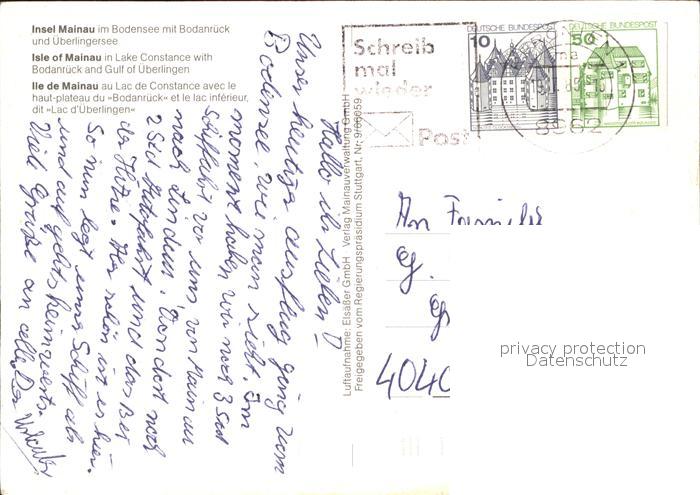 Insel Mainau im Bodensee mit Bodanrück
und Überlingersee
Isle of Mainau in Lake Constance with
Bodanrück and Gulf of Überlingen
Ile de Mainau au Lac de Constance avec le
haut-plateau du »Bodanrück« et le lac inférieur,
dit »Lac d'Überlingen«
Schreib
mal
wieder
Post
DEUTSCHE BUNDESPOST
10
DEUTSCHE BUNDESPOST
50
Luftaufnahme: Elsäßer GmbH Verlag Mainauverwaltung GmbH
Freigegeben vom Regierungspräsidium Stuttgart, Nr. 9/66059
Hallo ihr Lieben!
Unser heutiger Ausflug ging zum
Bodensee, wie man sieht. Im
moment haben wir noch 3 Std
Schiffahrt vor uns von Mainau
nach Lindau. Von dort noch
2 Std Autofahrt und das bei
der Hitze. Hier schön ist es hier.
So nun legt unser Schiff ab
und auf gehts heimwerts.
Viele Grüße an alle
An Familie
4040
privacy protection
Datenschutz